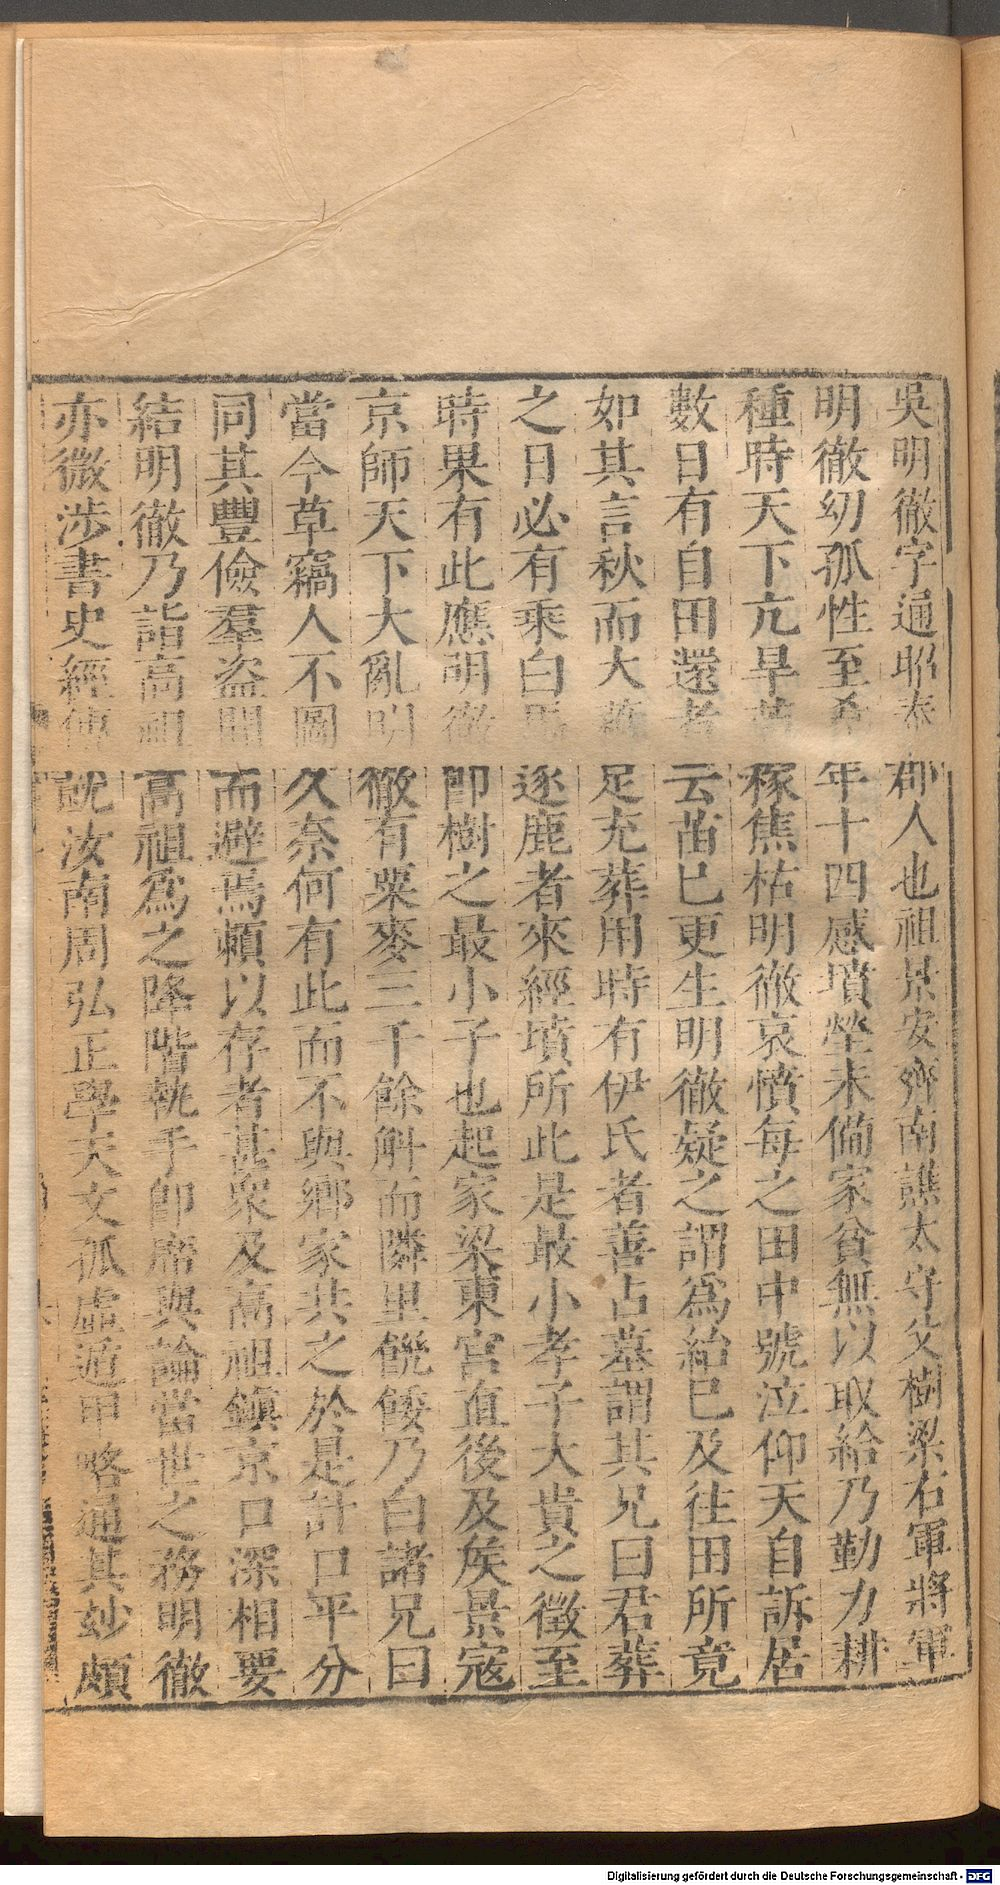 吳明徹字通昭秦郡人也祖景安齊南譙太守父樹梁右軍將軍
明徹幼孤性至孝年十四感墳塋未備家貧無以取給乃勤力耕
種時天下亢旱苗稼焦枯明徹哀憤每之田中號泣仰天自訴居
數日有自田還者云苗已更生明徹疑之謂爲紿已及往田所竟
如其言秋而大穫足充葬用時有伊氏者善占墓謂其兄曰君葬
之日必有乘白馬逐鹿者來經墳所此是最小孝子大貴之徵至
時果有此應明徹即樹之最小子也起家梁東宮直後及侯景寇
京師天下大亂明徹有粟麥三千餘斛而隣里饑餧乃白諸兄曰
當今草竊人不圖久奈何有此而不與鄉家共之於是計口平分
同其豐儉羣盜聞而避焉賴以存者甚衆及高祖鎮京口深相要
結明徹乃詣高祖高祖爲之降階執手即席與論當世之務明徹
亦微涉書史經傳就汝南周弘正學天文孤虛遁甲略通其妙頗
Digitalisierung gefördert durch die Deutsche Forschungsgemeinschaft - DFG